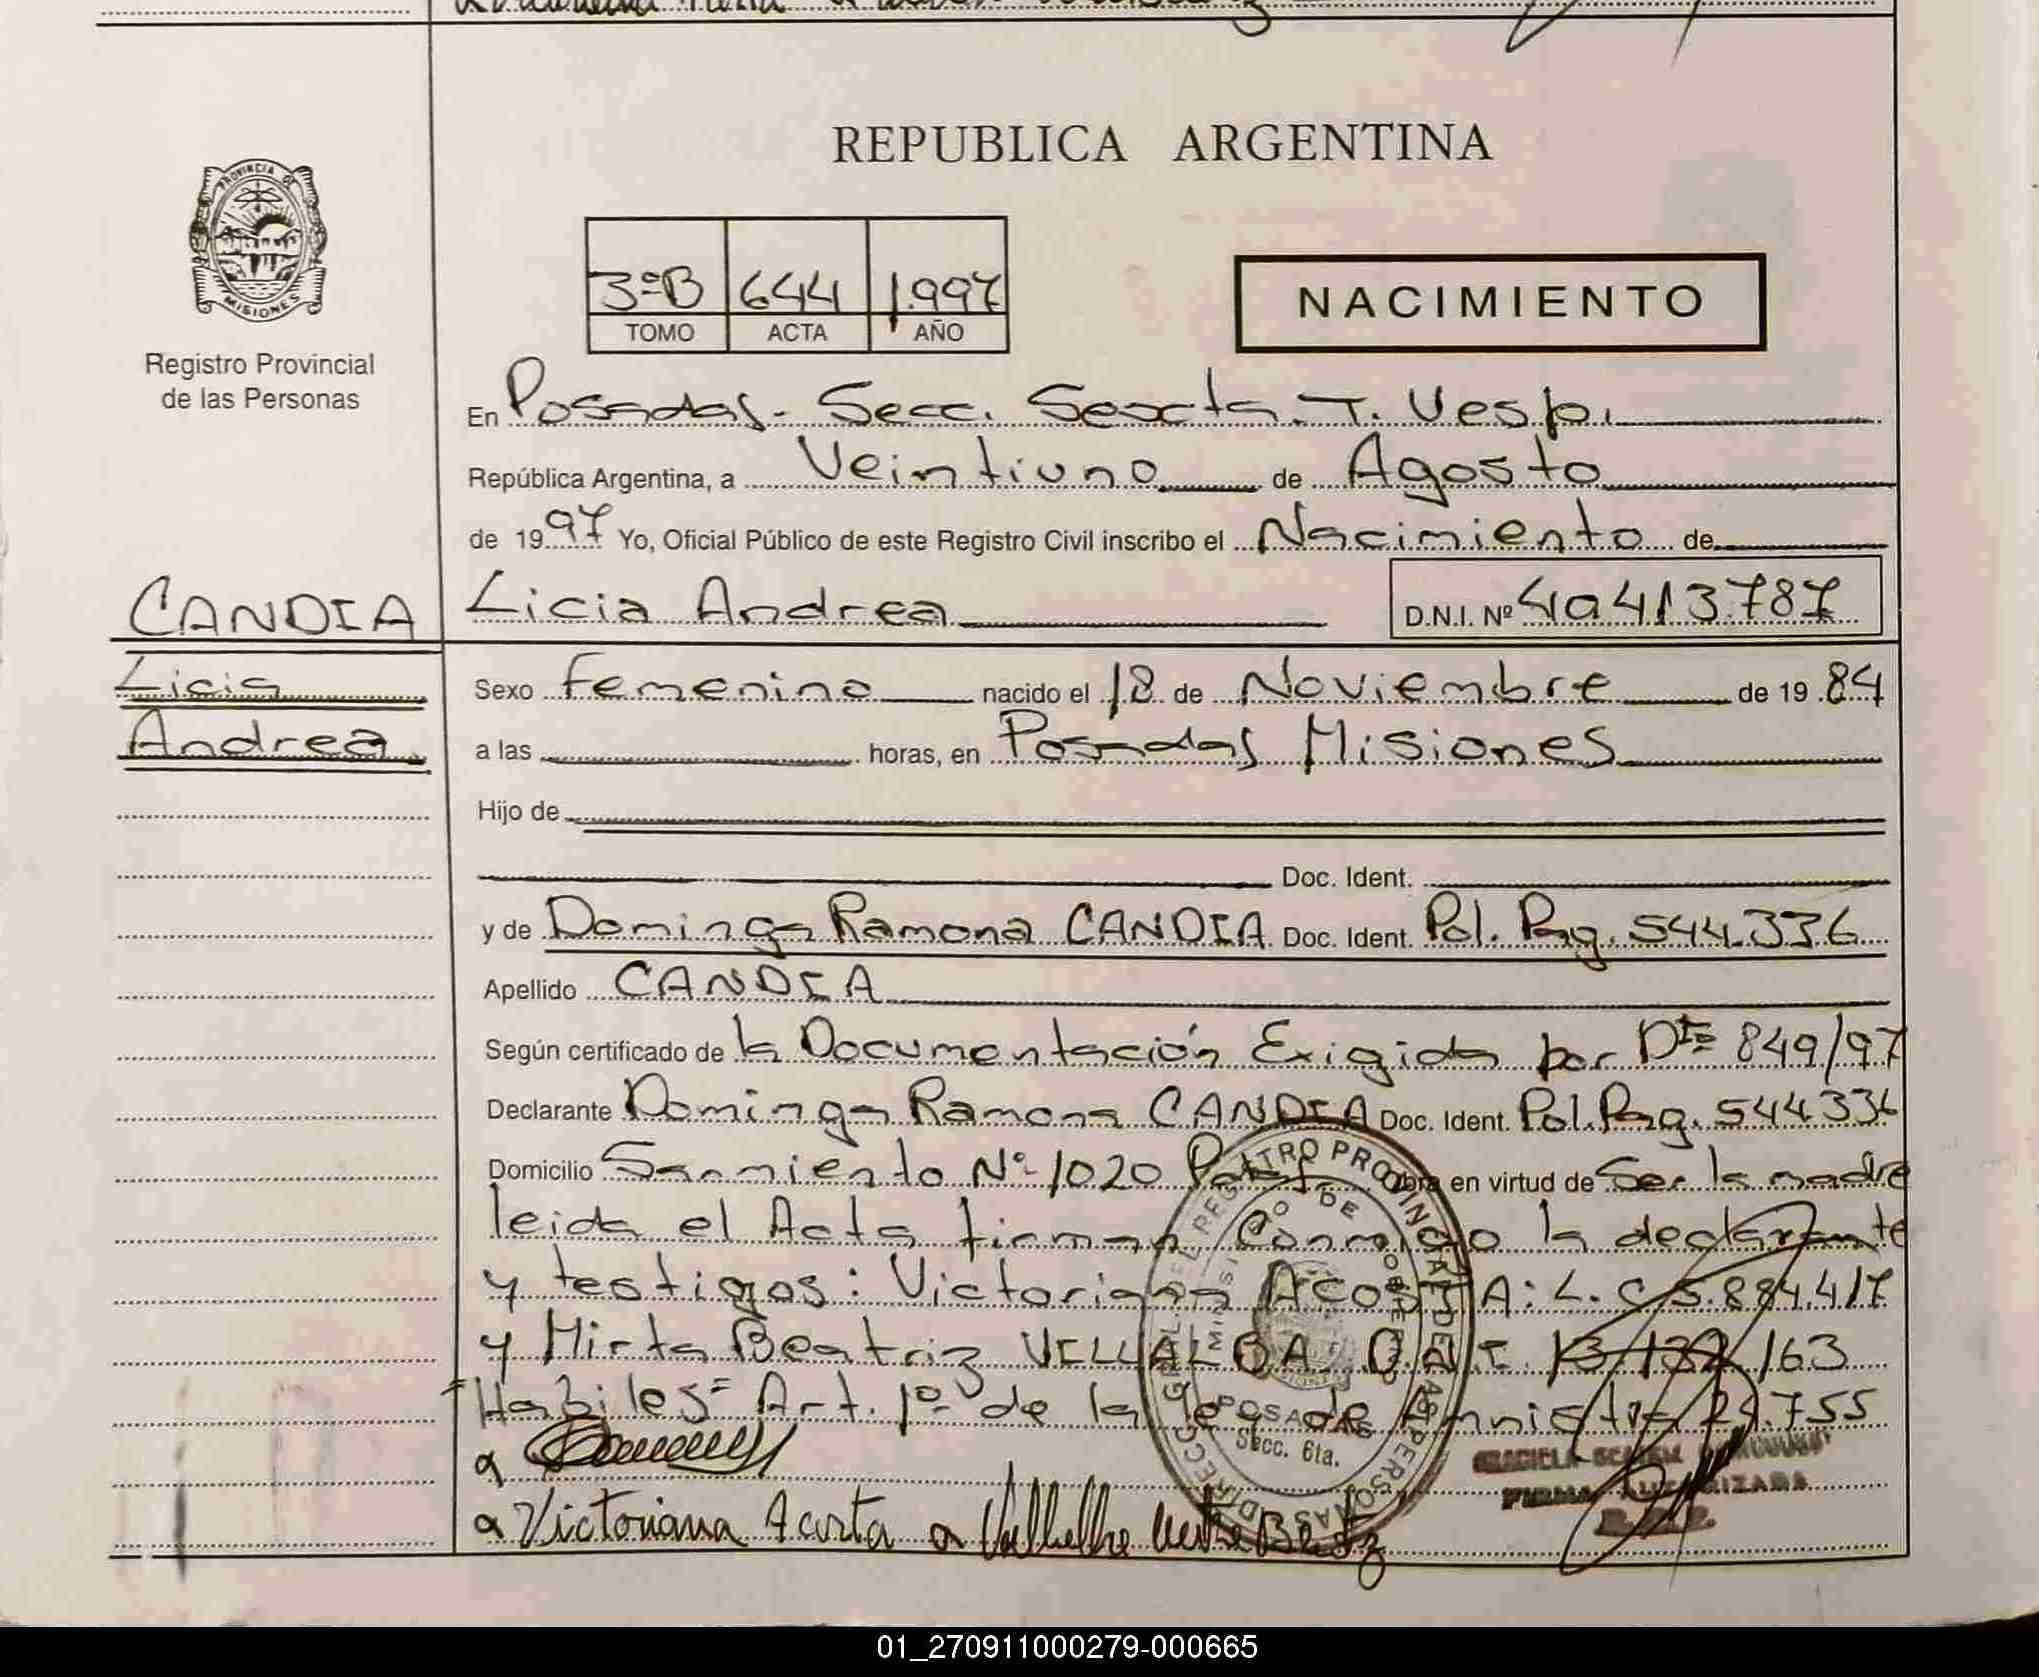 REPUBLICA ARGENTINA
PROVINCIA DE
MISIONES
Registro Provincial
de las Personas
3ºB 644 1.997
TOMO ACTA AÑO
NACIMIENTO
En Posadas - Secc. Sexta. T. Vesp.
República Argentina, a Veintiuno de Agosto
de 1997 Yo, Oficial Público de este Registro Civil inscribo el Nacimiento de
CANDIA
Licia Andrea D.N.I. Nº 40413.787
Licia
Andrea
Sexo Femenino nacido el 18 de Noviembre de 1984
a las horas, en Posadas Misiones
Hijo de
Doc. Ident.
y de Dominga Ramona CANDIA Doc. Ident. Pol. Pag. 544.336
Apellido CANDIA
Según certificado de la Documentación Exigida por Dto 849/97
Declarante Dominga Ramona CANDIA Doc. Ident. Pol. Pag. 544336
Domicilio Sarmiento Nº 1020 Obra en virtud de Ser la madre
leida el Acta firman Conmigo la declarante
y testigos: Victoriana ACOSTA: L.C 5.884.417
y Mirta Beatriz VILLALBA D.N.I. 13.132.163
"Habiles" Art. 1º de la Ley de Amnistia 24.755
a
a Victoriana Acosta a
DIRECC. GRAL. DEL REGISTRO PROVINCIAL DE LAS PERSONAS
MINISTERIO DE GOBIERNO
POSADAS
Secc. 6ta.
GRACIELA
FIRMA AUTORIZADA
01_270911000279-000665